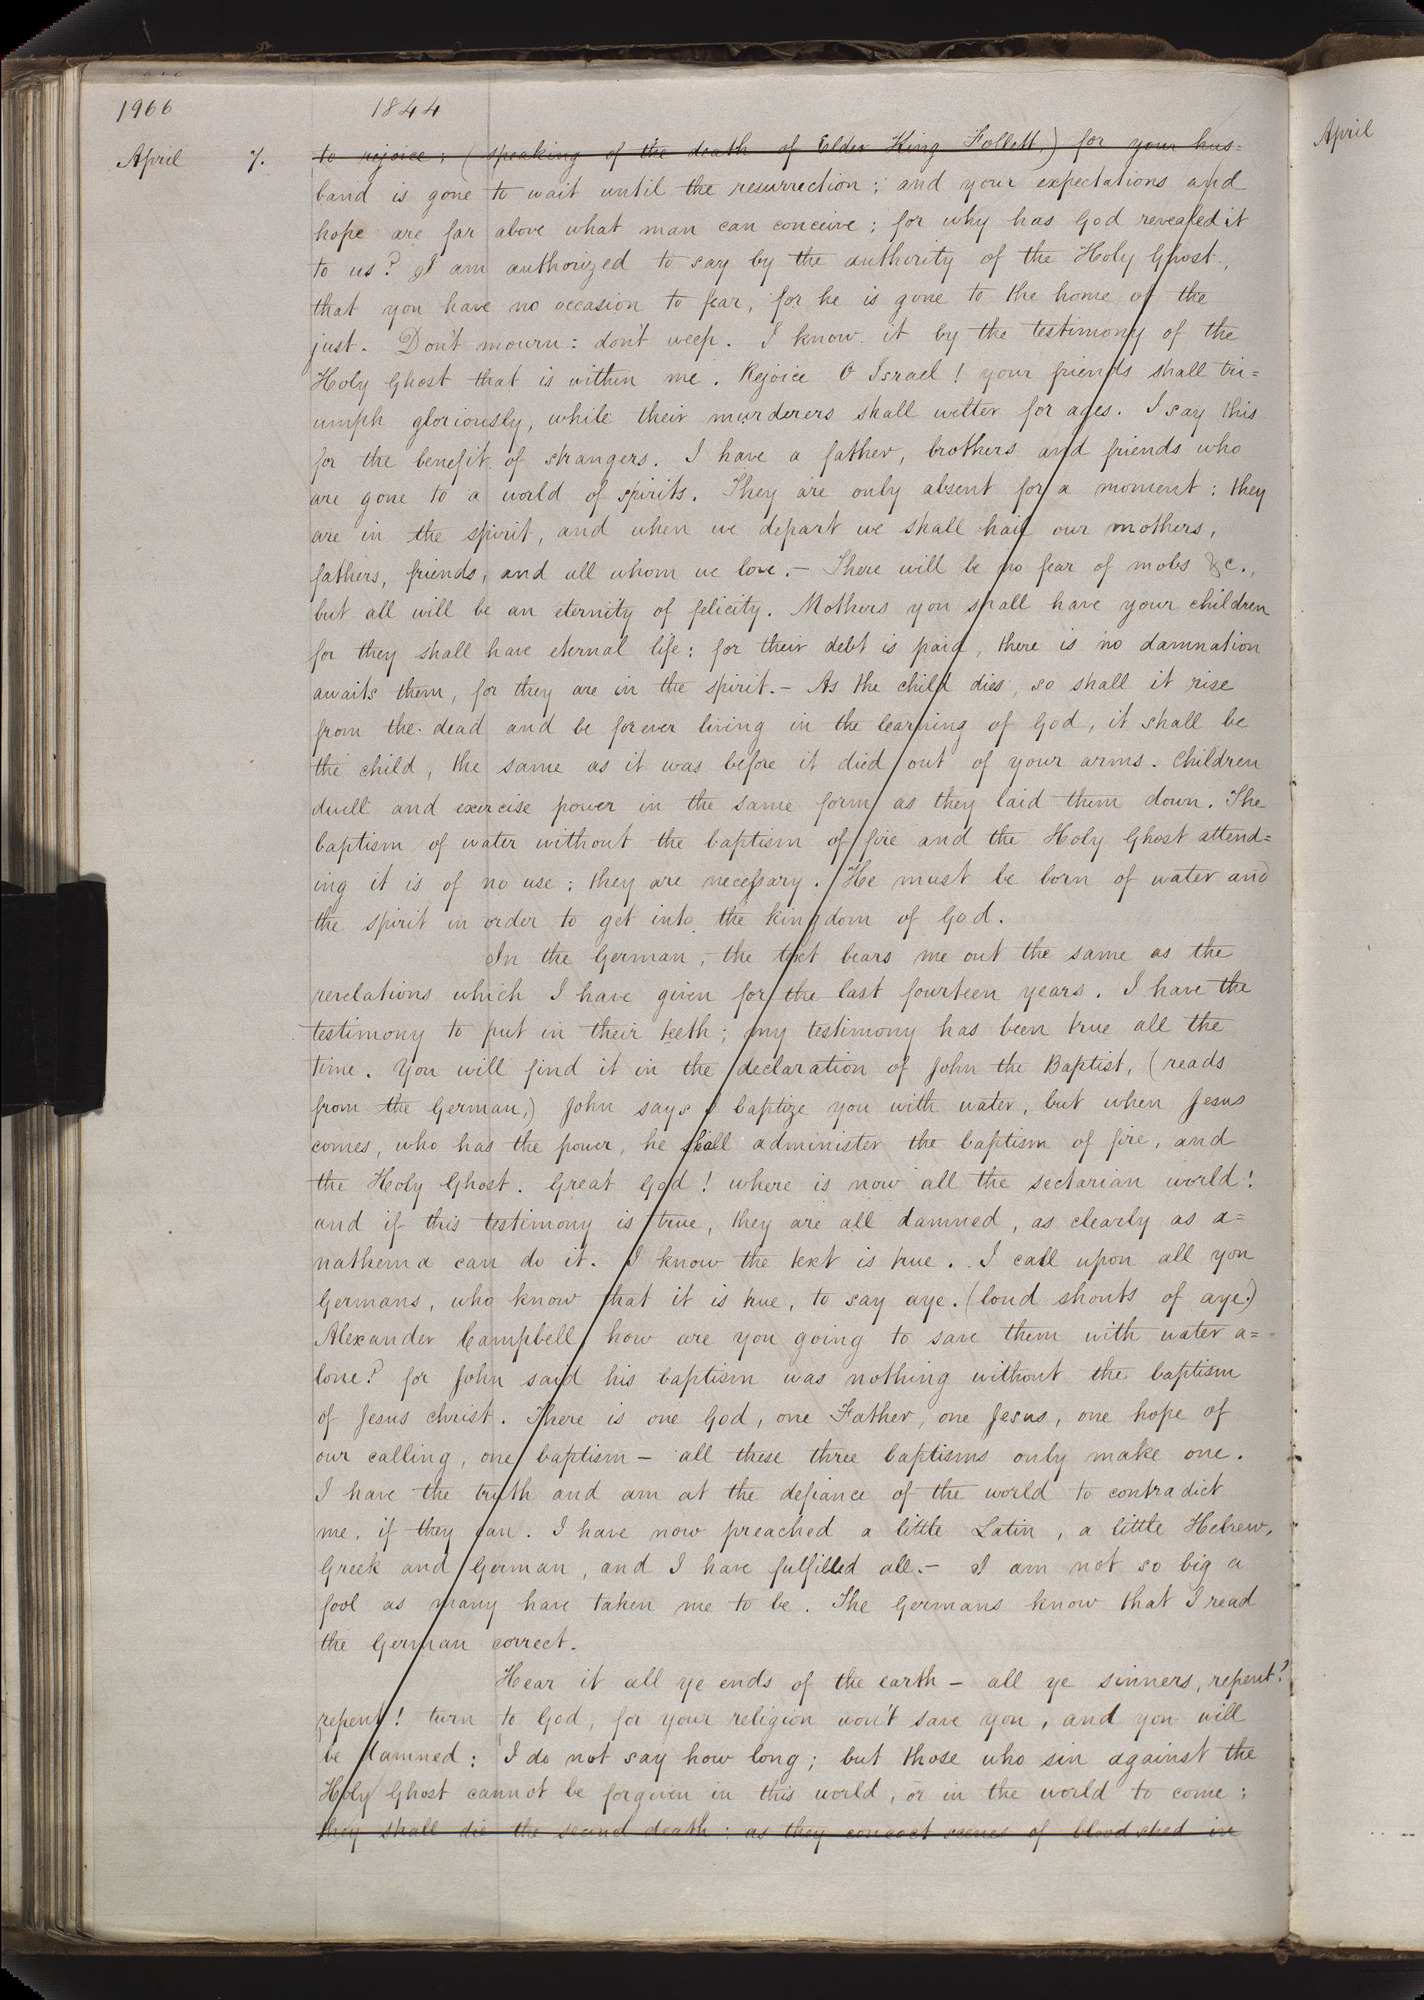 1966 1844
April 7. to rejoice; (speaking of the death of Elder King Follett.) for your hus=
band is gone to wait until the resurrection; and your expectations and
hope are far above what man can conceive; for why has God revealed it
to us? I am authorized to say by the authority of the Holy Ghost,
that you have no occasion to fear, for he is gone to the home of the
just. Don't mourn: don't weep. I know it by the testimony of the
Holy Ghost that is within me. Rejoice O Israel! your friends shall tri=
umph gloriously, while their murderers shall welter for ages. I say this
for the benefit of strangers. I have a father, brothers and friends who
are gone to a world of spirits. They are only absent for a moment: they
are in the spirit, and when we depart we shall hail our mothers,
fathers, friends, and all whom we love.— There will be no fear of mobs &c.,
but all will be an eternity of felicity. Mothers you shall have your children
for they shall have eternal life: for their debt is paid, there is no damnation
awaits them, for they are in the spirit.— As the child dies, so shall it rise
from the dead and be forever living in the learning of God, it shall be
the child, the same as it was before it died out of your arms. Children
dwell and exercise power in the same form as they laid them down. The
baptism of water without the baptism of fire and the Holy Ghost attend=
ing it is of no use; they are necessary. He must be born of water and
the spirit in order to get into the kingdom of God.
In the German, the text bears me out the same as the
revelations which I have given for the last fourteen years. I have the
testimony to put in their teeth; my testimony has been true all the
time. You will find it in the declaration of John the Baptist, (reads
from the German,) John says I baptize you with water, but when Jesus
comes, who has the power, he shall administer the baptism of fire, and
the Holy Ghost. Great God! where is now all the sectarian world!
and if this testimony is true, they are all damned, as clearly as a=
nathema can do it. I know the text is true. I call upon all you
Germans, who know that it is true, to say aye. (loud shouts of aye.)
Alexander Campbell, how are you going to save them with water a=
lone? for John said his baptism was nothing without the baptism
of Jesus Christ. There is one God, one Father, one Jesus, one hope of
our calling, one baptism— all these three baptisms only make one.
I have the truth and am at the defiance of the world to contradict
me, if they can. I have now preached a little Latin, a little Hebrew,
Greek and German, and I have fulfilled all.— I am not so big a
fool as many have taken me to be. The Germans know that I read
the German correct.
Hear it all ye ends of the earth— all ye sinners, repent!
repent! turn to God, for your religion won't save you, and you will
be damned: I do not say how long; but those who sin against the
Holy Ghost cannot be forgiven in this world, or in the world to come;
they shall die the second death: as they concoct scenes of bloodshed in
April